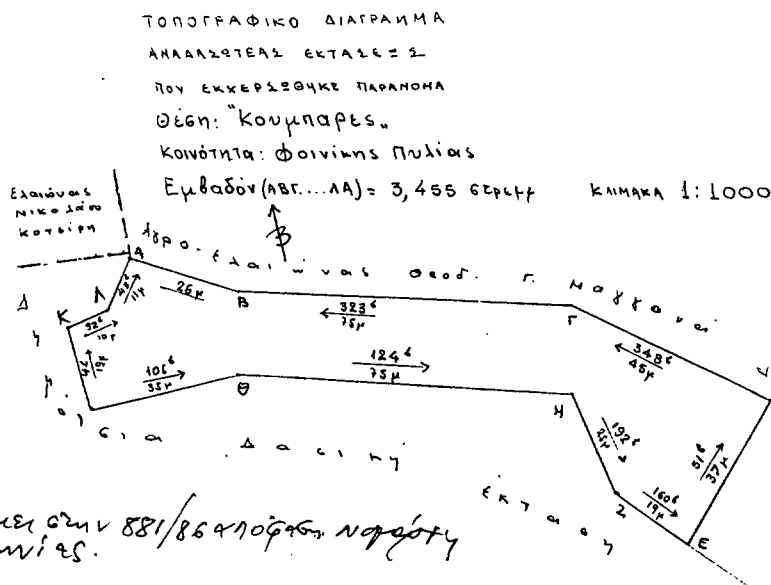 ΤΟΠΟΓΡΑΦΙΚΟ ΔΙΑΓΡΑΜΜΑ
ΑΝΑΔΑΣΩΤΕΑΣ ΕΚΤΑΣΕΩΣ
ΠΟΥ ΕΚΧΕΡΣΩΘΗΚΕ ΠΑΡΑΝΟΜΑ
Θέση: "Κουμπαρες"
Κοινότητα: Φοινίκης Πυλίας
Εμβαδόν (ΑΒΓ....ΛΑ) = 3,455 στρεμ
ΚΛΙΜΑΚΑ 1:1000
Ελαιώνας
Νικολάου
Κοτσίρη
Β
Αγρο-ελαιώνας Θεοδ. Γ. Μαγγανά
Α
26μ
Β
323σ
75μ
Γ
348σ
45μ
Δ
Κ
Λ
11μ
10μ
19μ
106σ
35μ
Θ
124σ
75μ
Η
192σ
25μ
Ζ
160σ
19μ
Ε
51σ
37μ
Δημόσια Δασική έκταση
στην 881/86 απόφαση Νομάρχη